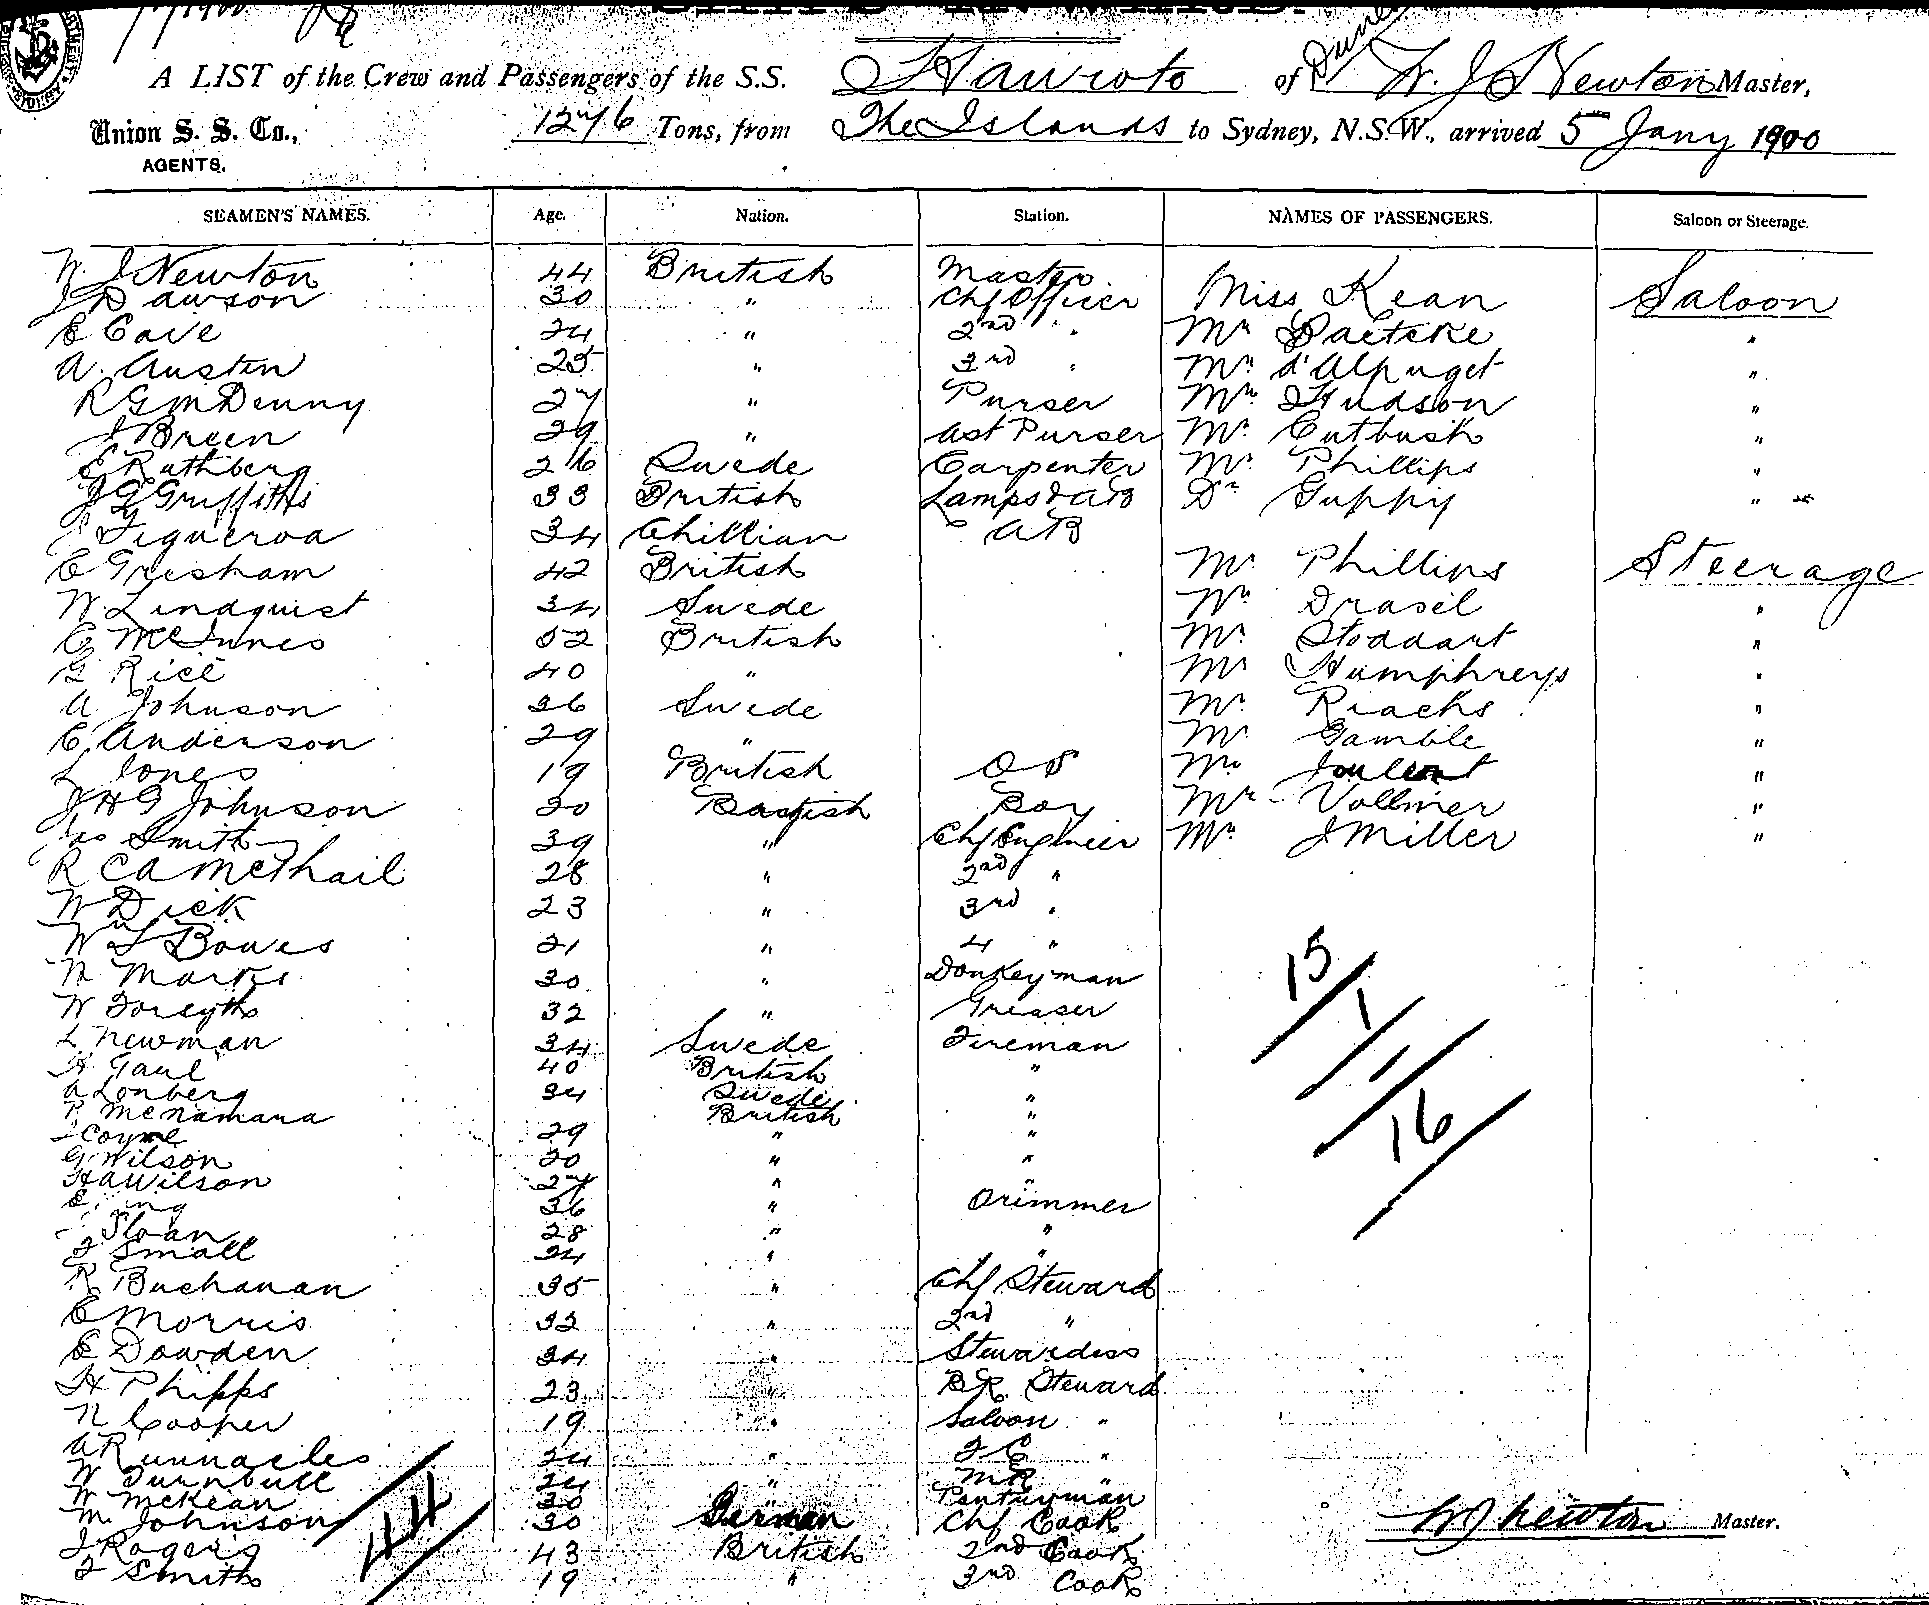 A LIST of the Crew and Passengers of the S.S. Hauroto of Dune W. J Newton Master,
Union S. S. Co., 1276 Tons, from The Islands to Sydney, N.S.W., arrived 5 Jany 1900
AGENTS.
SEAMEN'S NAMES. Age. Nation. Station. NAMES OF PASSENGERS. Saloon or Steerage.
W. J Newton 44 British Master
J Dawson 30 " Chf Officer Miss Kean Saloon
E Cave 24 " 2nd " Mr Paetzke "
A. Austen 25 " 3rd " Mr d'Alpuget "
R G McDenny 27 " Purser Mr Hudson "
J Breen 29 " Ast Purser Mr Cutbush "
E Rathberg 26 Swede Carpenter Mr Phillips "
J G Griffiths 33 British Lamps & AB Dr Guppy "
Figueroa 34 Chillian AB
C Gresham 42 British Mr Phillips Steerage
W Lindquist 34 Swede Mr Drasil "
C McInnes 52 British Mr Stoddart "
G Rice 40 " Mr Humphreys "
A Johnson 26 Swede Mr Riachs "
C. Anderson 29 " Mr Gamble "
L Jones 19 British OS Mr "
J H G Johnson 20 British Boy Mr Vollmer "
Jas Smith 39 " Chf Engineer Mr J Miller "
R C A McThail 28 " 2nd "
W Dick 23 " 3rd "
W L Bowes 21 " 4 "
N Marks 30 " Donkeyman
W Forsyth 32 " Greaser
L Newman 34 Swede Fireman
H Gaul 40 British "
A Lonberg 34 Swede "
P McNamara British "
J Coyne 29 " "
G Wilson 20 " "
H A Wilson 27 " "
E 26 " Trimmer
Sloan 28 " "
J Small 24 " "
R Buchanan 35 " Chf Steward
E Morris 32 " 2nd "
E Dowden 34 " Stewardess
H Phipps 23 " BR Steward
N Cooper 19 " Saloon "
A Runnacles 24 " F C "
W Turnbull 24 " M R "
W McKean 30 " Pantryman
M Johnson 30 German Chf Cook
J Rogers 43 British 2nd Cook
F Smith 19 " 3rd Cook
15
1
1
16
44
W J Newton Master.